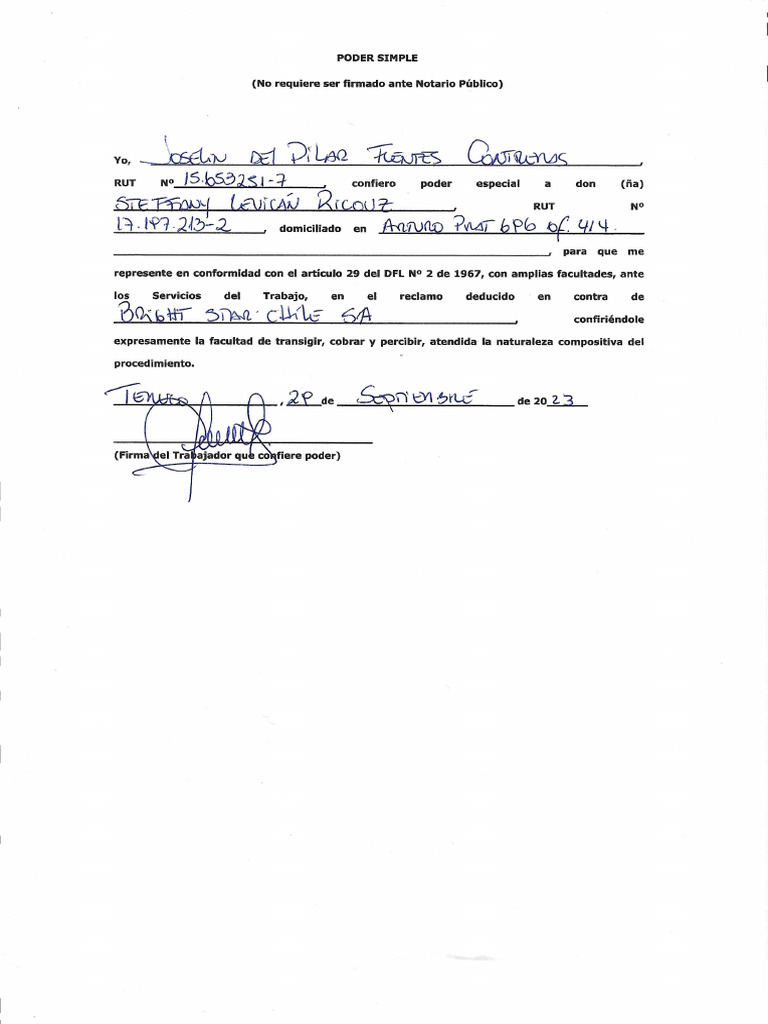 PODER SIMPLE
(No requiere ser firmado ante Notario Público)
Yo, JOSELIN DEL PILAR FUENTES CONTRERAS,
RUT Nº 15.653251-7, confiero poder especial a don (ña)
STEFFANY LEVICÁN RICOUZ, RUT Nº
17.197.213-2, domiciliado en ARTURO PRAT 696 of. 414.
, para que me
represente en conformidad con el artículo 29 del DFL Nº 2 de 1967, con amplias facultades, ante
los Servicios del Trabajo, en el reclamo deducido en contra de
BRIGHT STAR CHILE SA, confiriéndole
expresamente la facultad de transigir, cobrar y percibir, atendida la naturaleza compositiva del
procedimiento.
TEMUCO, 29 de SEPTIEMBRE de 2023
(Firma del Trabajador que confiere poder)